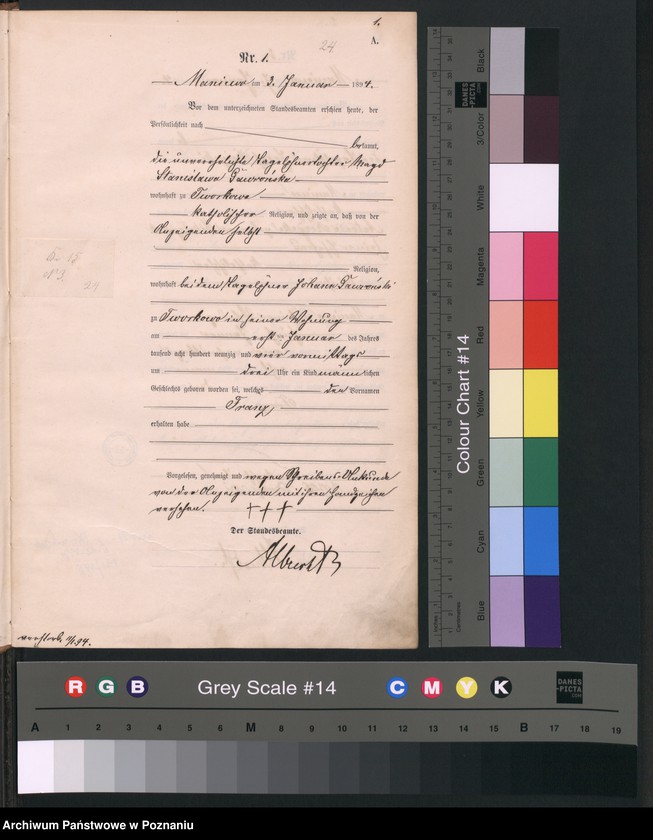 1.
A.
24
Nr. 1.
Maniewo am 3. Januar 1894.
Vor dem unterzeichneten Standesbeamten erschien heute, der
Persönlichkeit nach
bekannt,
die unverehelichte Tagelöhnertochter Magd
Stanislawa
wohnhaft zu Tworkowo
katholischer Religion, und zeigte an, daß von der
Anzeigenden selbst
Religion,
wohnhaft bei dem Tagelöhner Johann
zu Tworkowo in seiner Wohnung
am ersten Januar des Jahres
tausend acht hundert neunzig und vier vormittags
um drei Uhr ein Kind männlichen
Geschlechts geboren worden sei, welches den Vornamen
Franz
erhalten habe
Vorgelesen, genehmigt und wegen Schreibens-Unkunde
von der Anzeigenden mit ihrem Handzeichen
versehen. † † †
Der Standesbeamte.
Albrecht
24
Colour Chart #14
Black
3/Color
White
Magenta
Red
Yellow
Green
Cyan
Blue
Centimetres
DANES
-PICTA
.COM
R G B Grey Scale #14 C M Y K
DANES
-PICTA
.COM
A 1 2 3 4 5 6 M 8 9 10 11 12 13 14 15 B 17 18 19
Archiwum Państwowe w Poznaniu